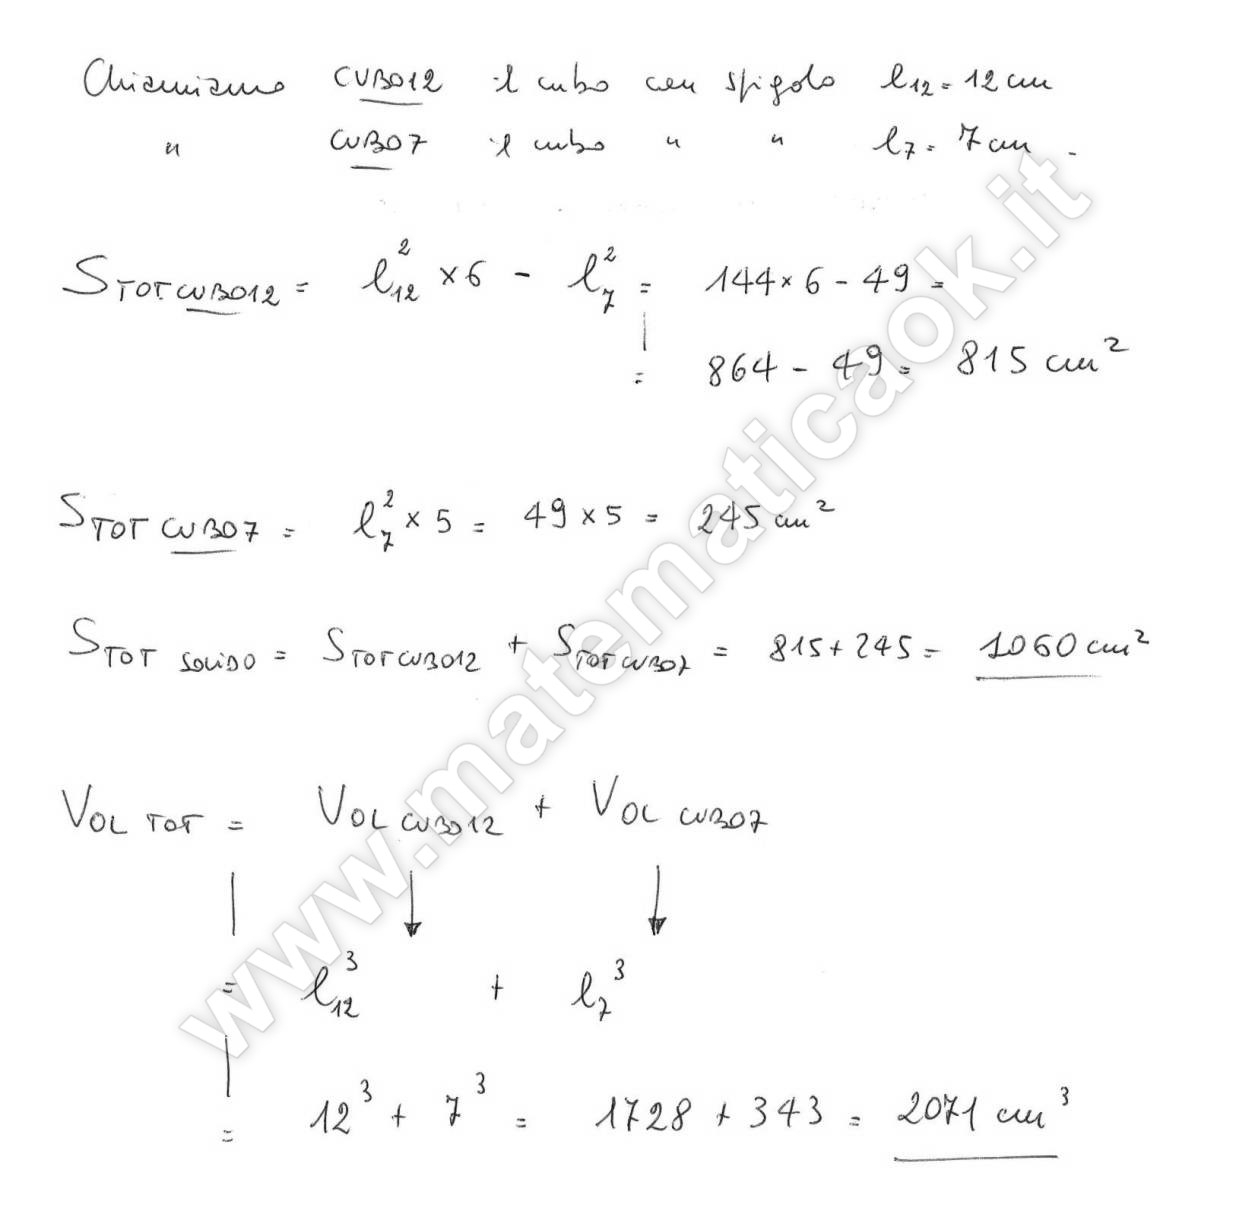 Chiamiamo CUBO12 il cubo con spigolo l₁₂ = 12 cm
" CUBO7 il cubo " " l₇ = 7 cm.
S TOT CUBO12 = l₁₂² × 6 - l₇² = 144 × 6 - 49 =
= 864 - 49 = 815 cm²
S TOT CUBO7 = l₇² × 5 = 49 × 5 = 245 cm²
S TOT SOLIDO = S TOT CUBO12 + S TOT CUBO7 = 815 + 245 = 1060 cm²
VOL TOT = VOL CUBO12 + VOL CUBO7
= l₁₂³ + l₇³
= 12³ + 7³ = 1728 + 343 = 2071 cm³
www.matematicaok.it